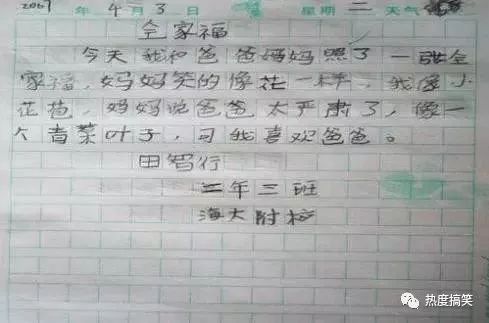 2007年 4月 3日 星期 二 天气
全家福
今天我和爸爸妈妈照了一张全
家福,妈妈笑的像花一样,我像小
花苞,妈妈说爸爸太严肃了,像一
个青菜叶子,可我喜欢爸爸。
田智行
二年三班
海大附校
热度搞笑